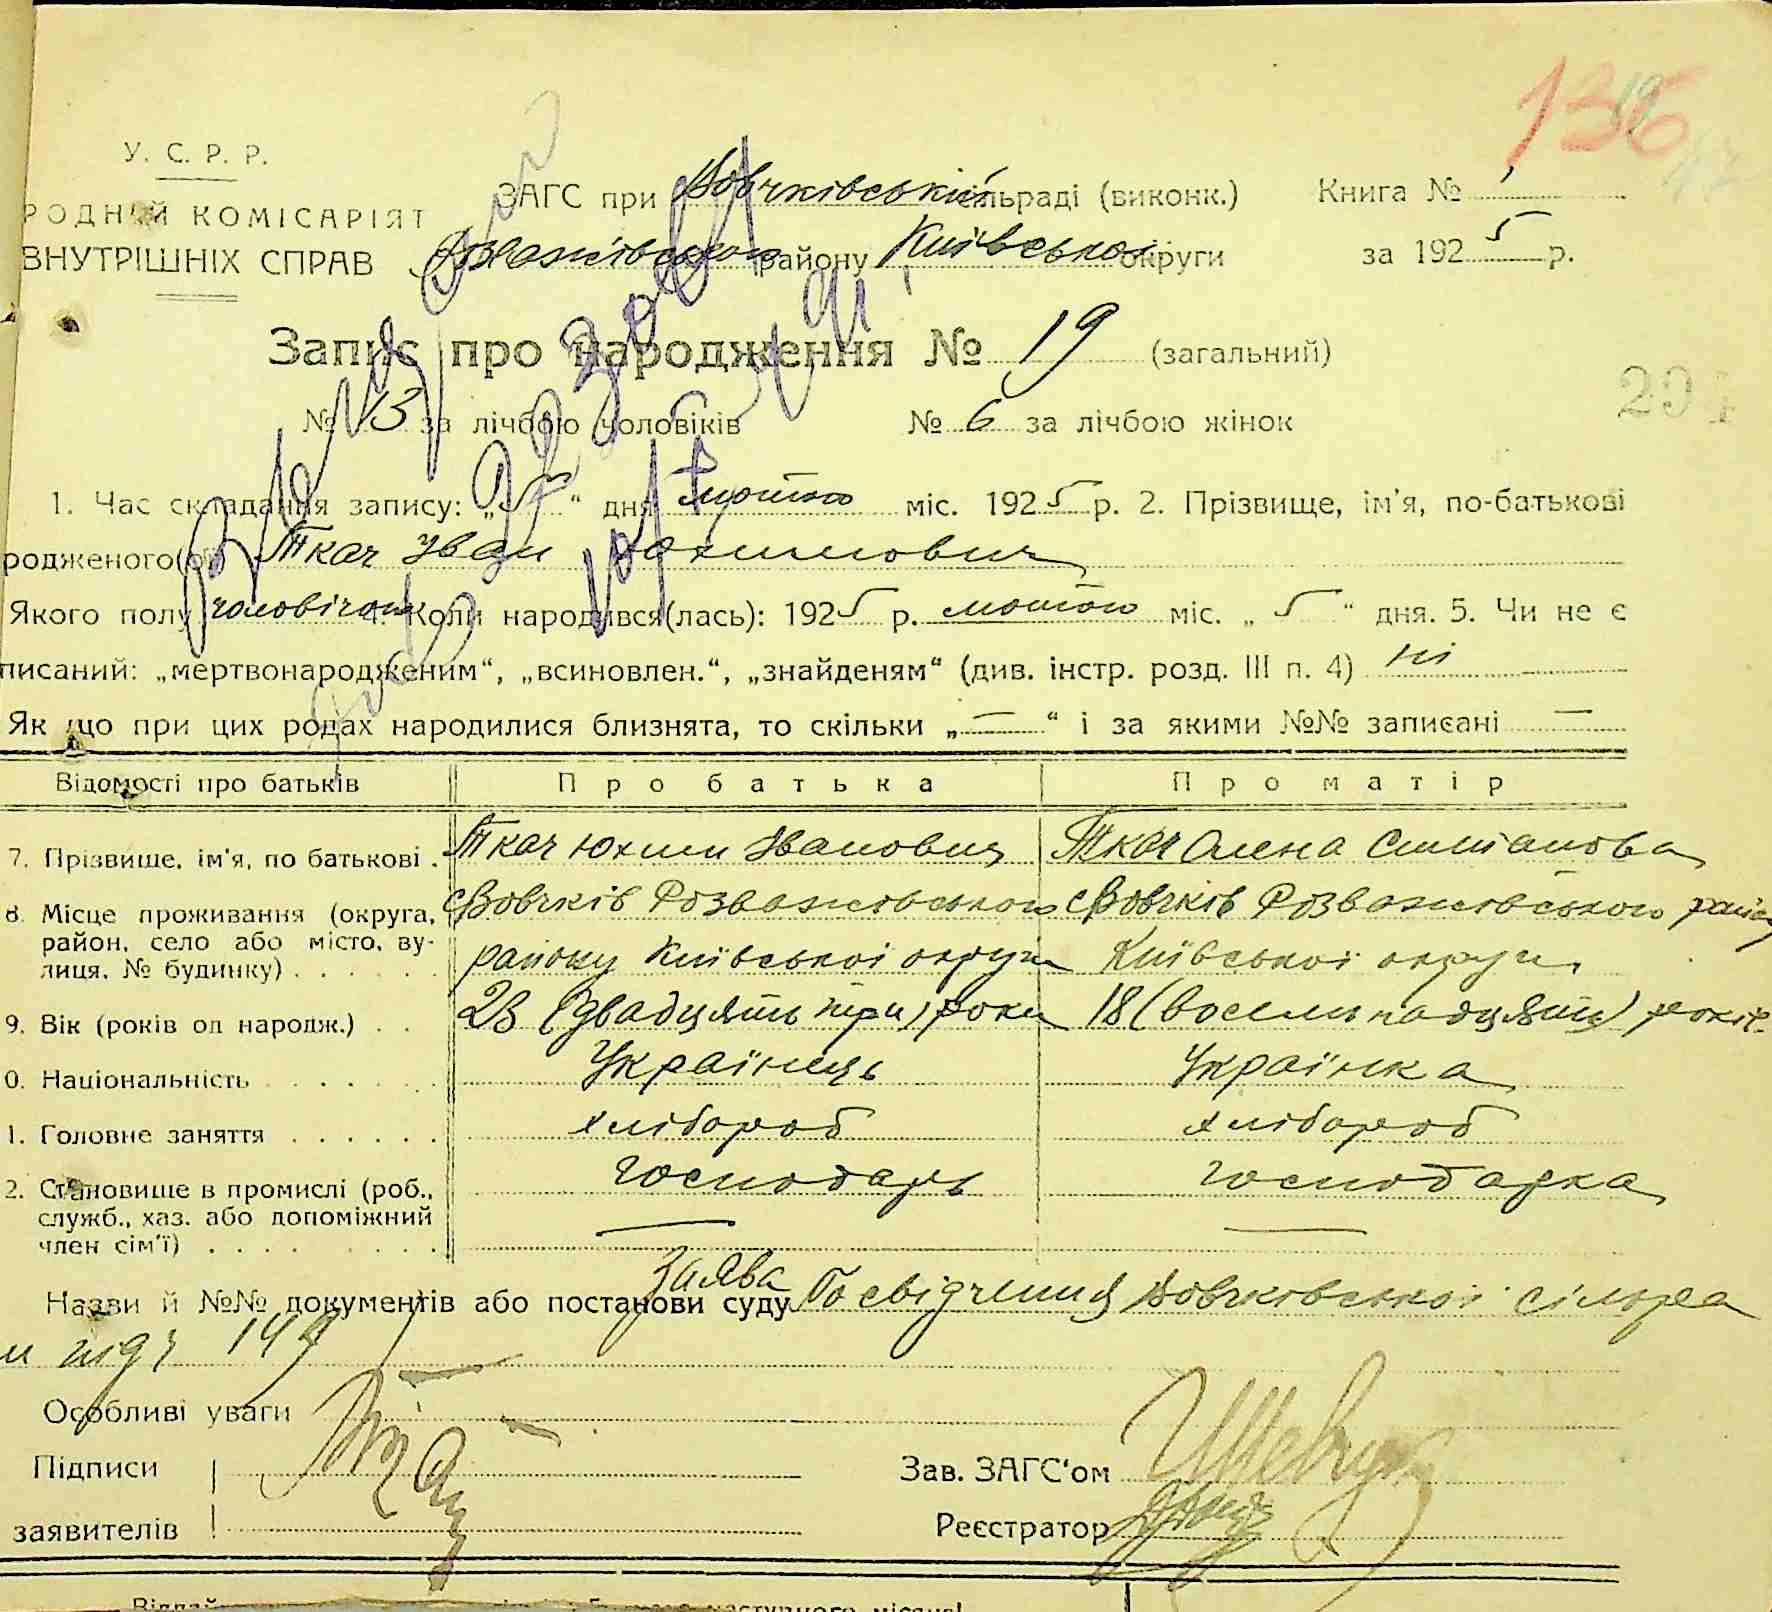 136
У. С. Р. Р.
РОДНІЙ КОМІСАРІЯТ
ВНУТРІШНІХ СПРАВ
ЗАГС при Вовчківській сільраді (виконк.) Книга № 1
Розважівського району Київської округи за 1925 р.
Запис про народження № 19 (загальний)
№ 13 за лічбою чоловіків № 6 за лічбою жінок
1. Час складання запису: „5“ дня лютого міс. 1925 р. 2. Прізвище, ім'я, по-батькові
родженого(ої) Ткач Іван Юхимович
Якого полу чоловічого 4. Коли народився(лась): 1925 р. лютого міс. „5“ дня. 5. Чи не є
писаний: „мертвонародженим“, „всиновлен.“, „знайденям“ (див. інстр. розд. III п. 4) ні
Як що при цих родах народилися близнята, то скільки „—“ і за якими №№ записані —
Відомості про батьків Про батька Про матір
7. Прізвище, ім'я, по батькові . Ткач Юхим Іванович Ткач Олена Степанова
8. Місце проживання (округа, район, село або місто, вулиця, № будинку) с Вовчків Розважівського району Київської округи с Вовчків Розважівського району Київської округи
9. Вік (років од народж.) . . 23 (двадцять три) роки 18 (восемнадцять) років
0. Національність Українець Українка
1. Головне заняття хлібороб хлібороб
2. Становище в промислі (роб., служб., хаз. або допоміжний член сім'ї) господарь господарка
Заява
Назви й №№ документів або постанови суду Посвідчення Вовчківської сільра
Особливі уваги
Підписи
заявителів
Зав. ЗАГС'ом
Реєстратор